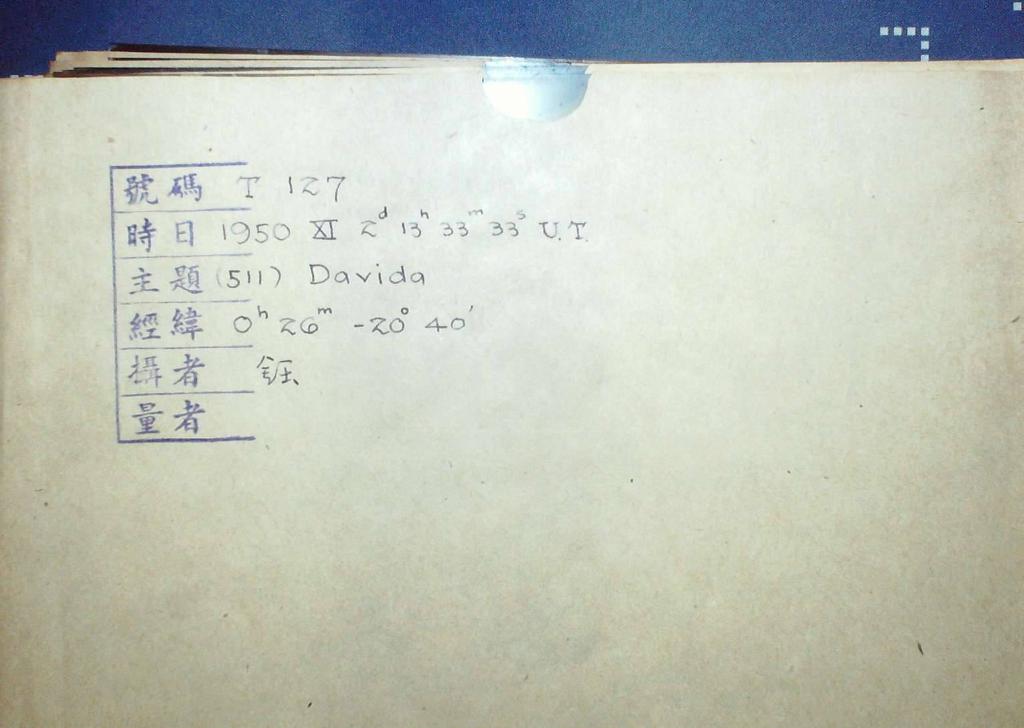 號碼 T 127
時日 1950 XI 2ᵈ 13ʰ 33ᵐ 33ˢ U.T.
主題 (511) Davida
經緯 0ʰ 26ᵐ -20° 40′
攝者 鈺
量者